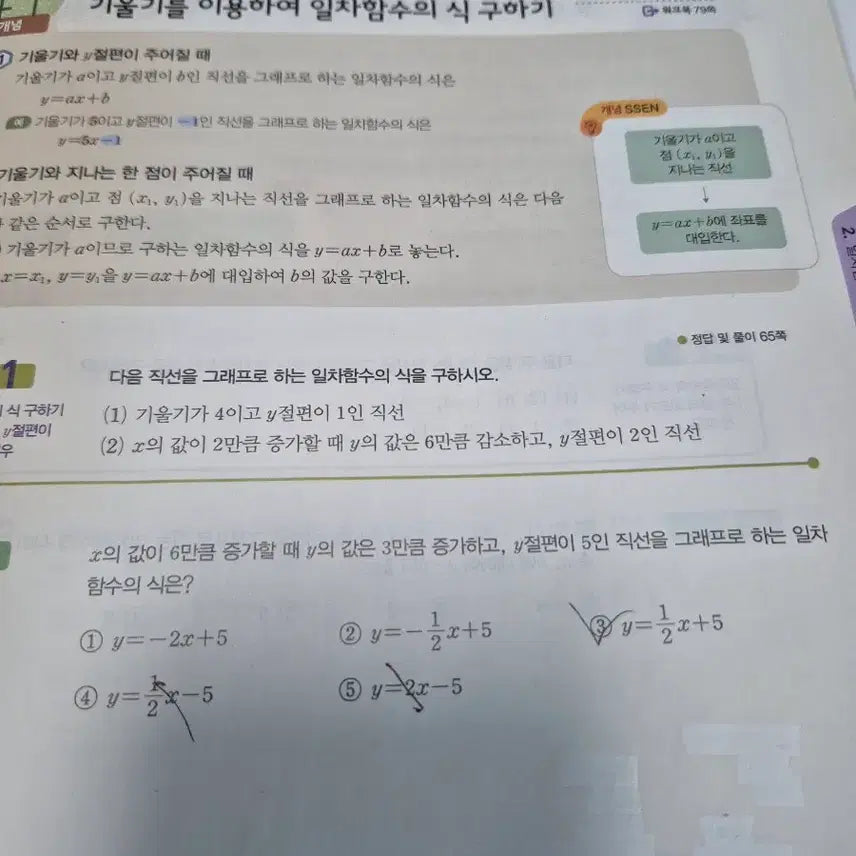 개념
기울기를 이용하여 일차함수의 식 구하기
워크북 79쪽
1 기울기와 y절편이 주어질 때
기울기가 a이고 y절편이 b인 직선을 그래프로 하는 일차함수의 식은
y=ax+b
예 기울기가 5이고 y절편이 -1인 직선을 그래프로 하는 일차함수의 식은
y=5x-1
기울기와 지나는 한 점이 주어질 때
기울기가 a이고 점 (x₁, y₁)을 지나는 직선을 그래프로 하는 일차함수의 식은 다음
같은 순서로 구한다.
기울기가 a이므로 구하는 일차함수의 식을 y=ax+b로 놓는다.
x=x₁, y=y₁을 y=ax+b에 대입하여 b의 값을 구한다.
개념 SSEN
기울기가 a이고
점 (x₁, y₁)을
지나는 직선
↓
y=ax+b에 좌표를
대입한다.
2.
정답 및 풀이 65쪽
1
식 구하기
y절편이
우
다음 직선을 그래프로 하는 일차함수의 식을 구하시오.
(1) 기울기가 4이고 y절편이 1인 직선
(2) x의 값이 2만큼 증가할 때 y의 값은 6만큼 감소하고, y절편이 2인 직선
x의 값이 6만큼 증가할 때 y의 값은 3만큼 증가하고, y절편이 5인 직선을 그래프로 하는 일차
함수의 식은?
① y=-2x+5 ② y=-1/2x+5 ③ y=1/2x+5
④ y=1/2x-5 ⑤ y=2x-5